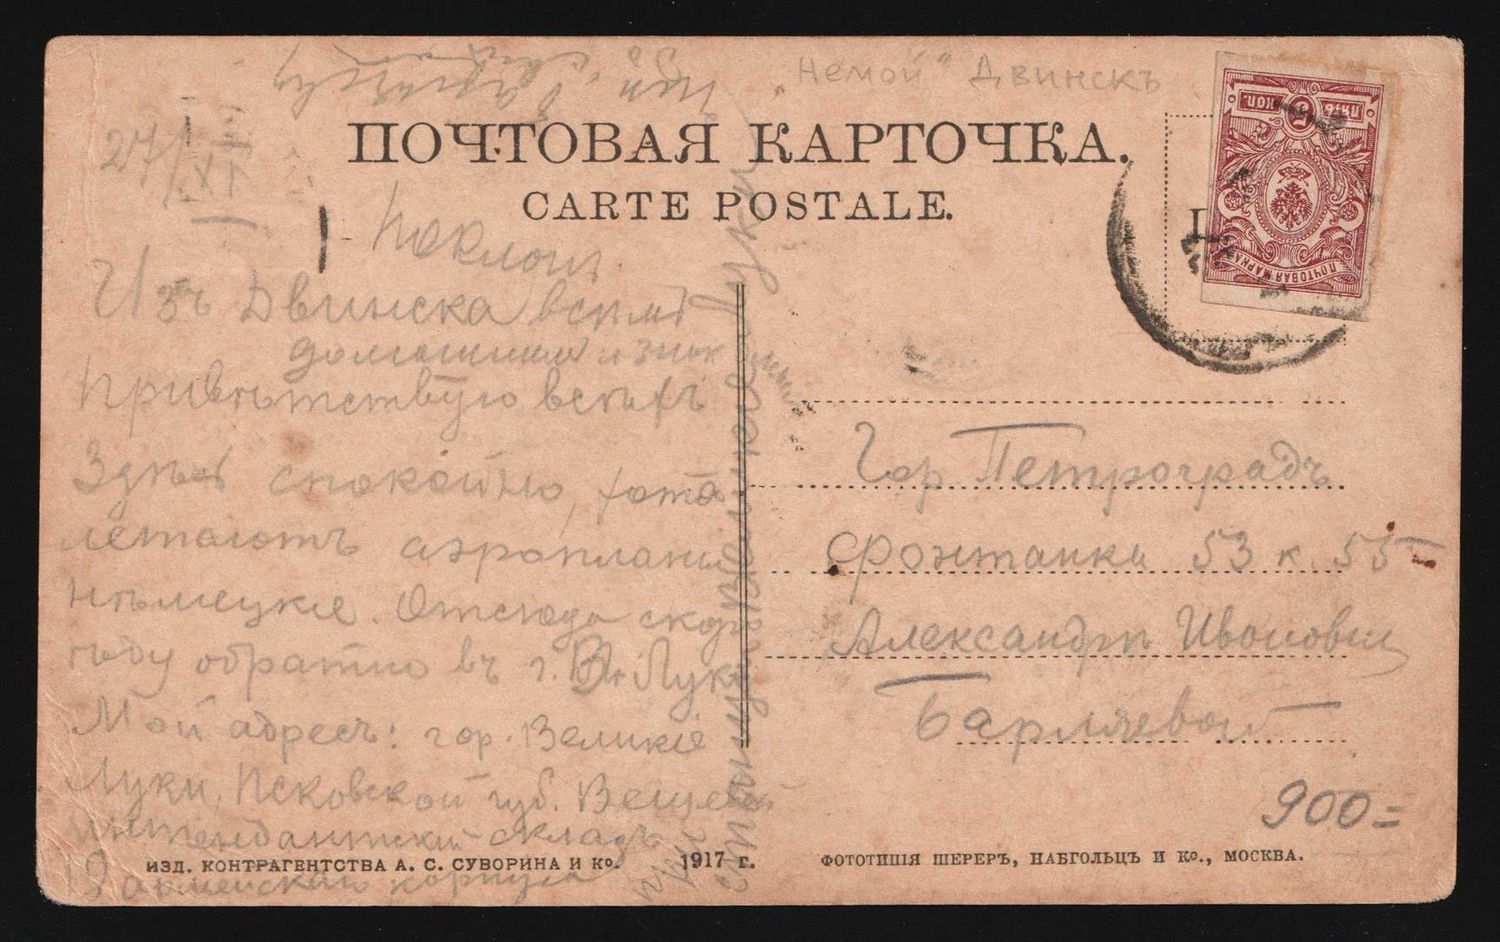 "Немой" Двинскъ
ПОЧТОВАЯ КАРТОЧКА.
CARTE POSTALE.
27/XI
Поклонъ
Изъ Двинска всѣмъ
домашним и знак
Привѣтствую всѣхъ
Здѣсь спокойно, хотя
летаютъ аэропланы
Нѣмецкіе. Отсюда скоро
ѣду обратно въ г. В. Луки
Мой адресъ: гор. Великіе
Луки, Псковской губ. Вещевой
Интендантский складъ
армейскаго корпуса
ПЯТЬ 5 КОП.
ПОЧТОВАЯ МАРКА
Гор Петроградъ
Фонтанка 53 к. 55
Александрѣ Ивановнѣ
Барляевой
900=
ИЗД. КОНТРАГЕНТСТВА А. С. СУВОРИНА И Ко. 1917 г.
ФОТОТИПІЯ ШЕРЕРЪ, НАБГОЛЬЦЪ И Ко., МОСКВА.